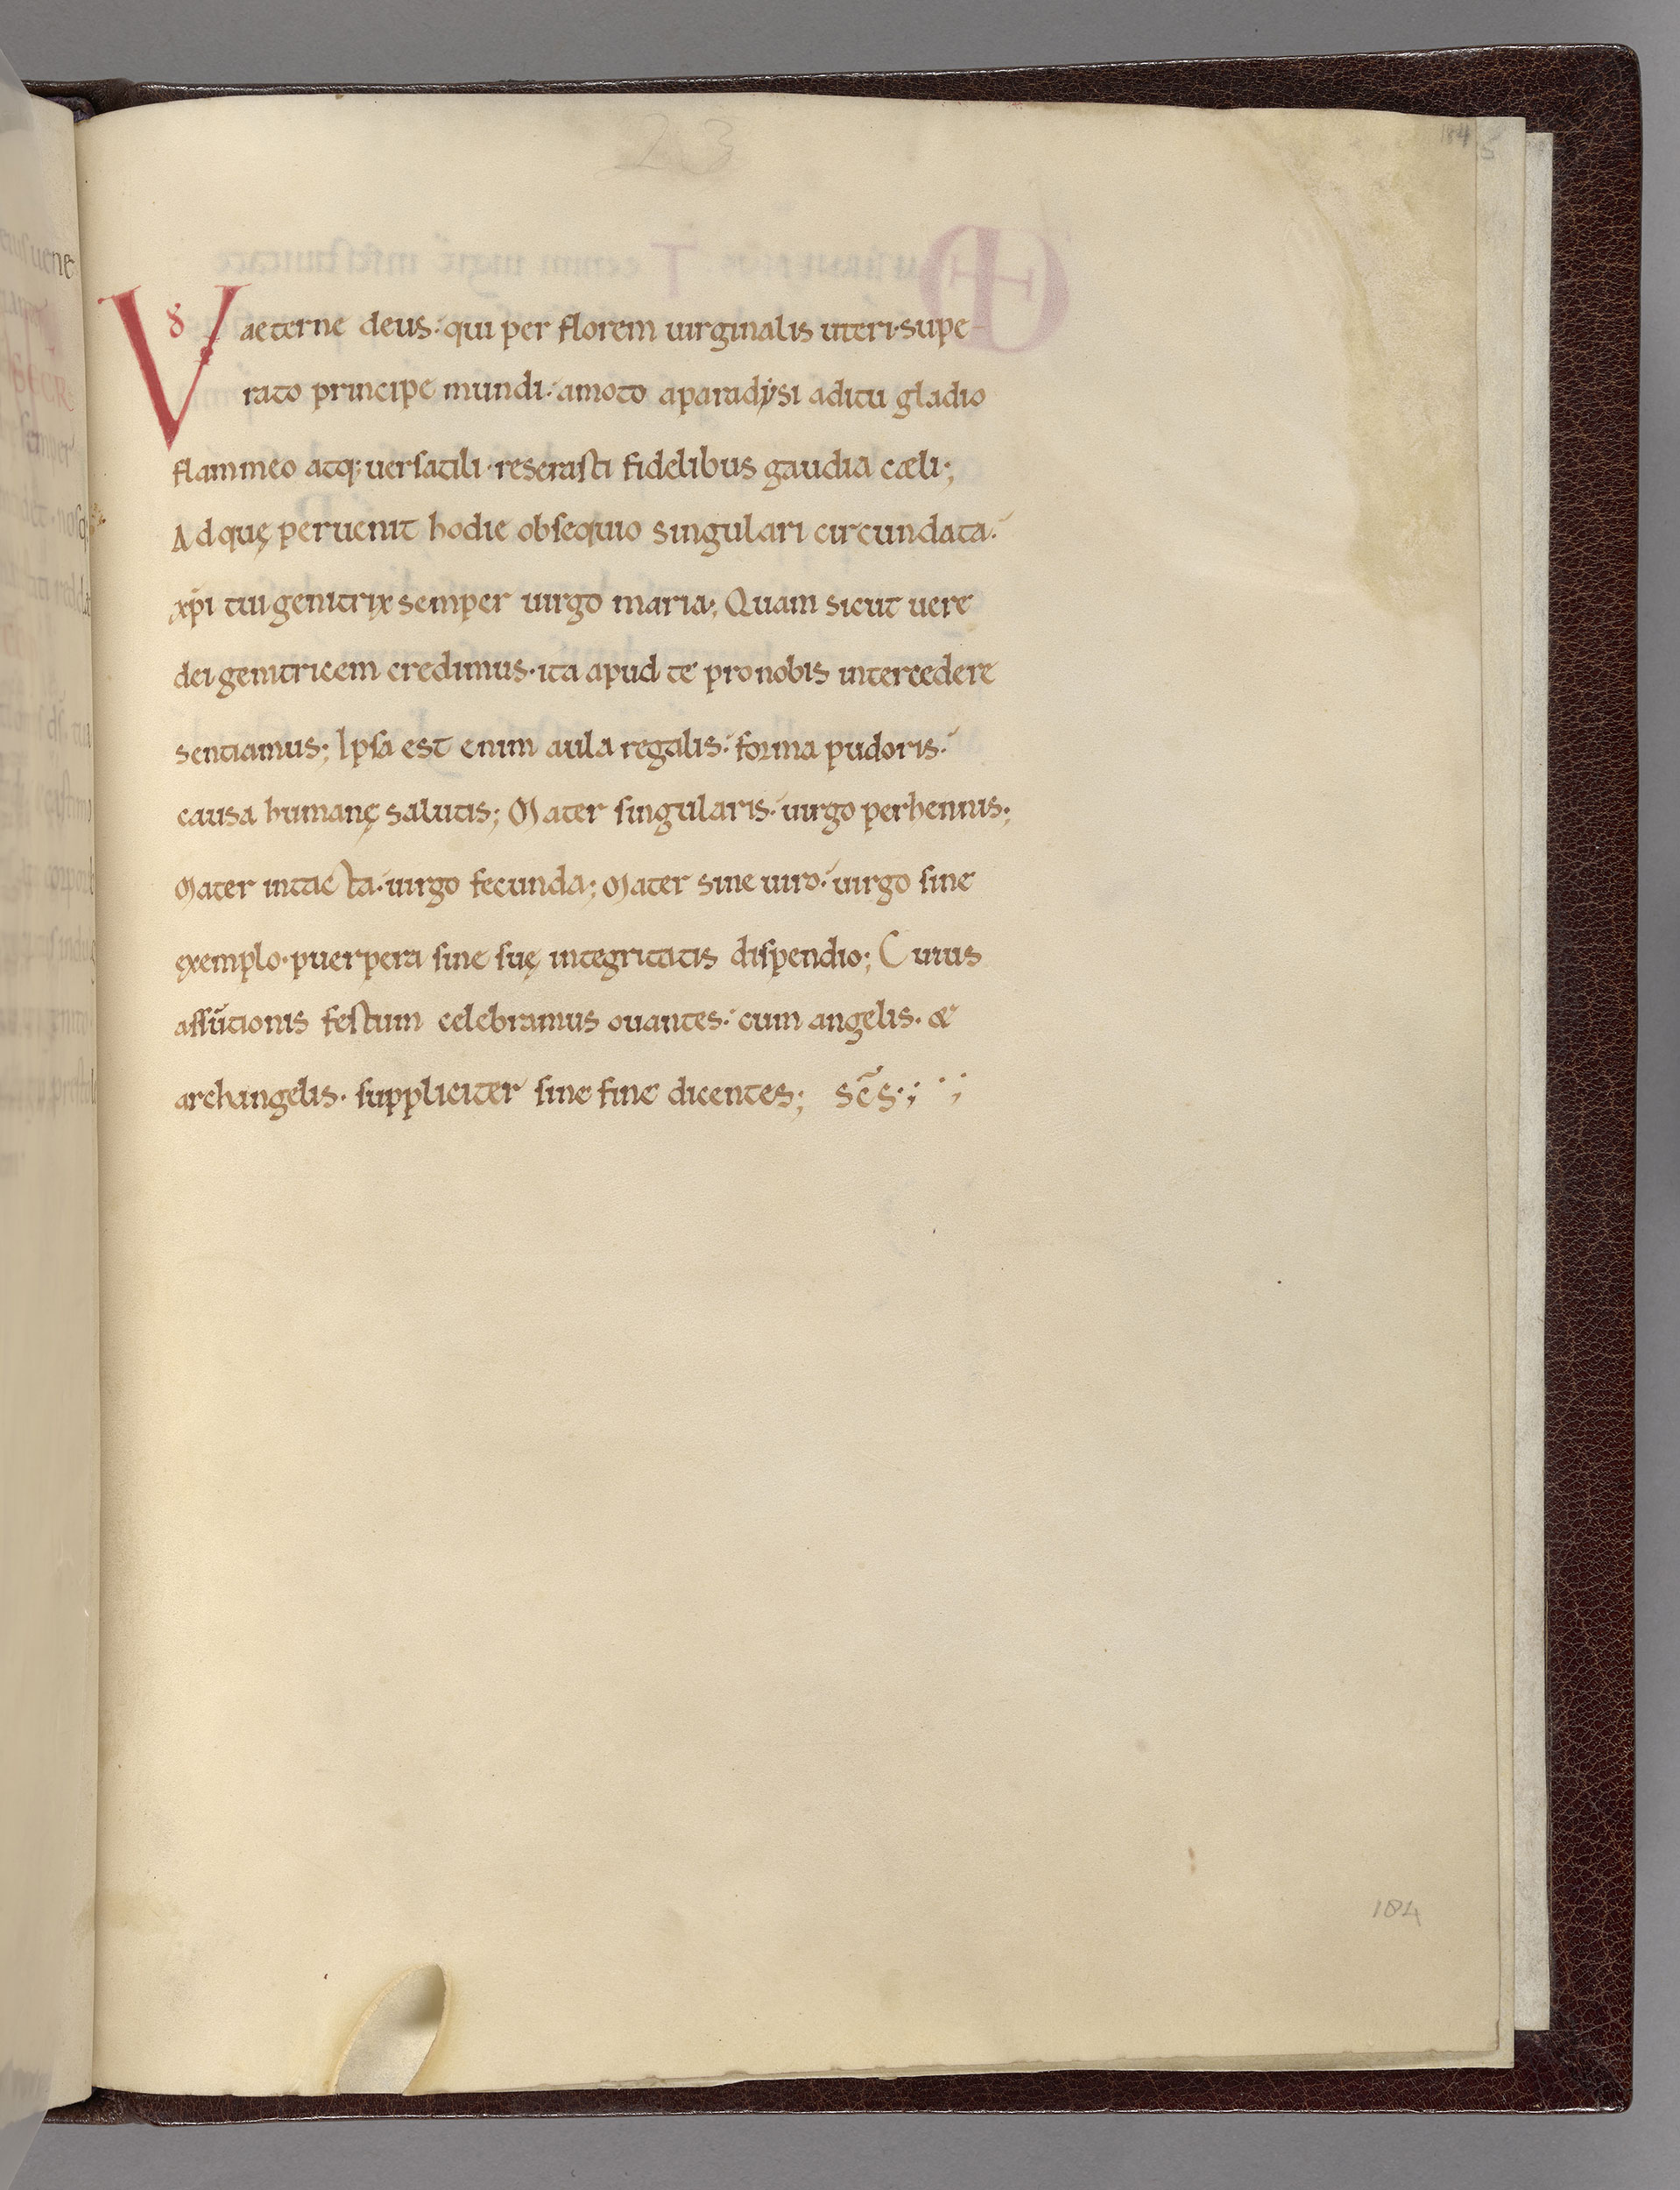 23
184 5
V& aeterne deus· qui per florem uirginalis uteri· supe-
rato principe mundi· amoto aparadẏsi aditu gladio
flammeo atq; uerſatili· reseraſti fidelibus gaudia cæli;
Ad quę peruenit hodie obſequio singulari circundata·
xp̄i tui genitrix semper uirgo maria; Quam sicut uere
dei genitricem credimus· ita apud te pro nobis intercedere
sentiamus; Ipſa est enim aula regalis· forma pudoris·
causa humanę salutis; Mater ſingularis· uirgo perhennis;
Mater intacta· uirgo fecunda; Mater sine uiro· uirgo ſine
exemplo· puerpera ſine ſuę integritatis diſpendio; Cuius
aſſūtionis feſtum celebramus ouantes· cum angelis· &
archangelis· ſuppliciter ſine fine dicentes; sc̄s·;
184